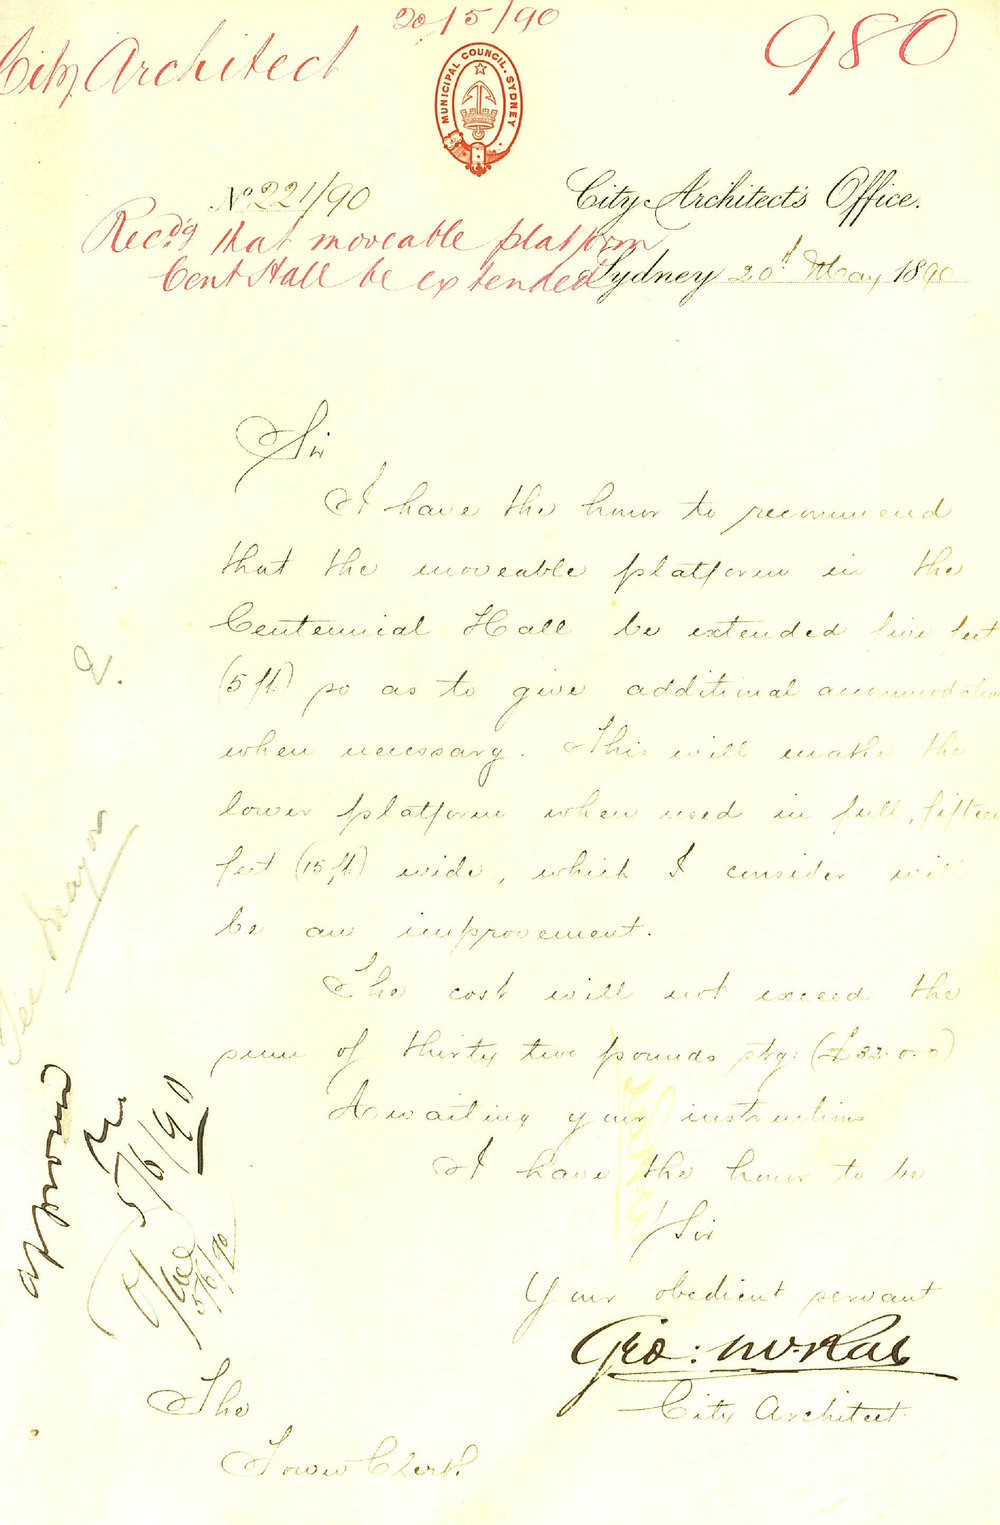 20/5/90
City Architect
980
MUNICIPAL COUNCIL. SYDNEY
No 221/90
City Architect's Office.
Rec'd'g that moveable platform
Cent Hall be extended
Sydney 20th May 1890
Sir
I have the honor to recommend
that the moveable platform in the
Centennial Hall be extended five feet
(5 ft) so as to give additional accommodation
when necessary. This will make the
lower platform when used in full, fifteen
feet (15 ft) wide, which I consider will
be an improvement.
The cost will not exceed the
sum of thirty two pounds stg: (£32.0.0)
Awaiting your instructions
I have the honor to be
Sir
Your obedient servant
Geo: McRae
City Architect
The
Town Clerk
Mayor
approved
5/6/90
5/6/90